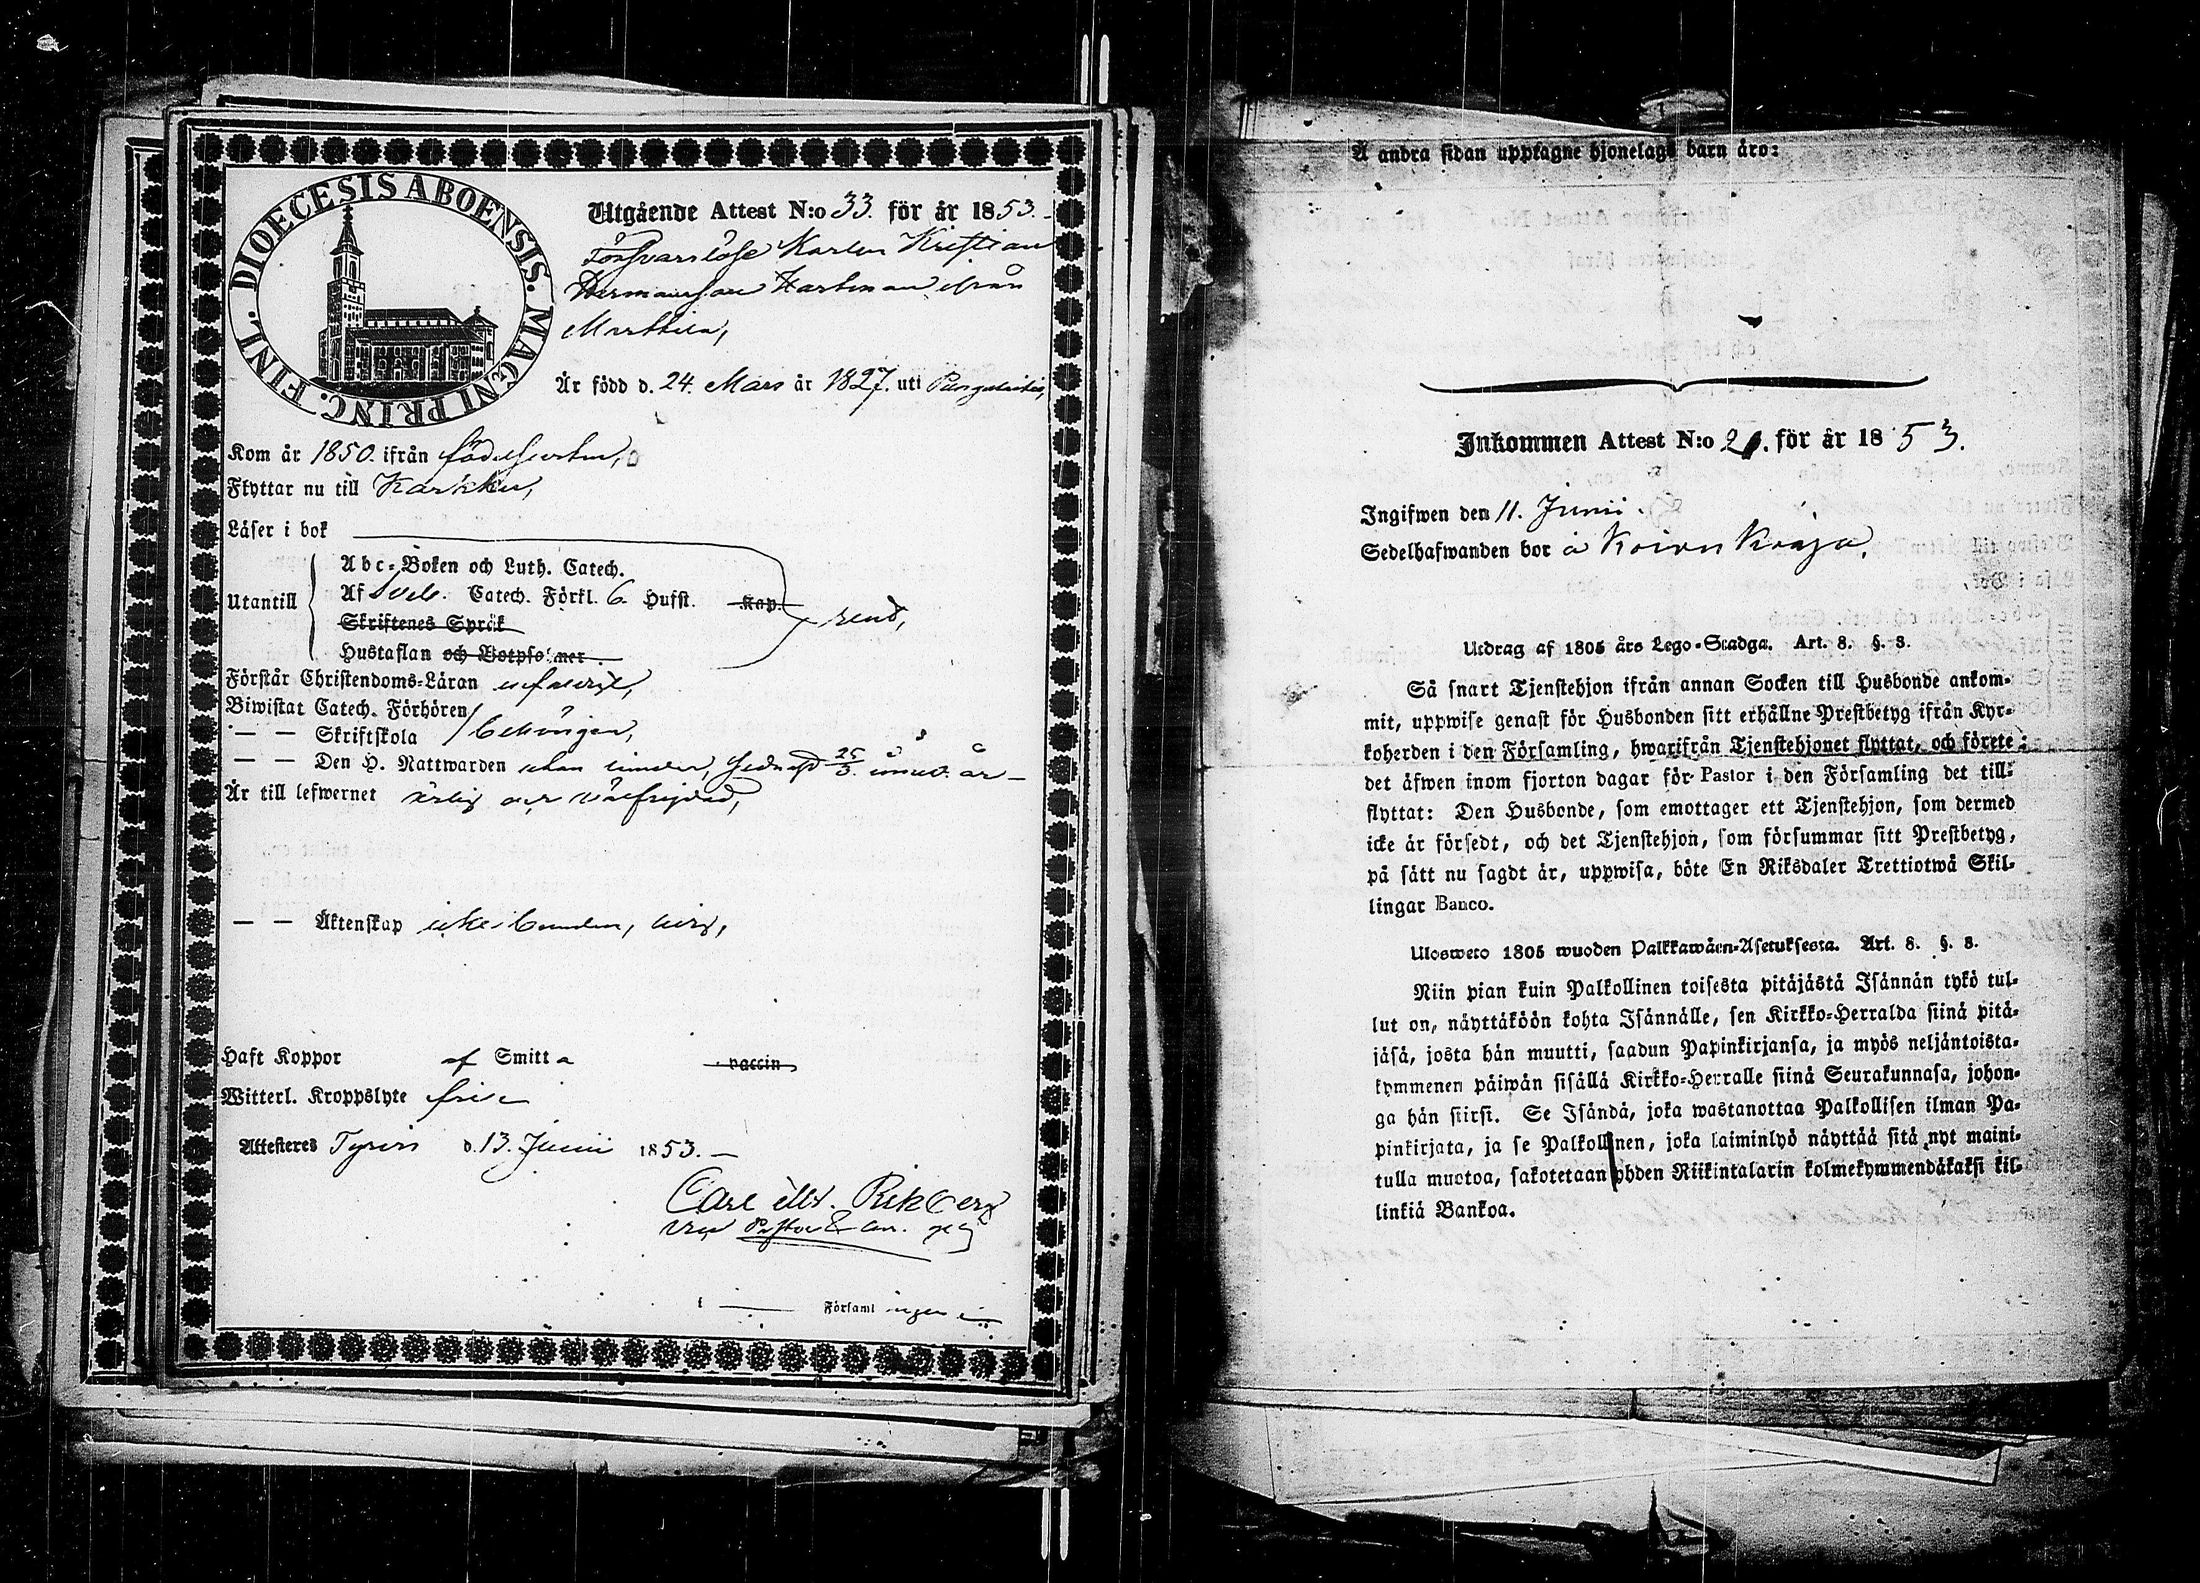 DIOECESIS ABOENSIS. MAGNI PRINC. FINL.
Utgående Attest N:o 33. för år 1853.
Försvarslöse Karlen Kristian
Hermansson Hartman ifrån
Marttila,
Är född d. 24. Mars år 1827. uti Pungalaitio,
Kom år 1850. ifrån födelseorten,
Flyttar nu till Karkku,
Läser i bok
Abc-Boken och Luth. Catech.
Utantill Af Sveb. Catech. Förkl. 6. Hufst. Kap. rent,
Skriftenes Språk
Hustaflan och Botpsalmer.
Förstår Christendoms-Läran
Biwistat Catech. Förhören
— — Skriftskola
— — Den H. Nattwarden sednast 25/3. år —
Är till lefwernet ärlig och välfrejdad,
— — Äktenskap icke bunden, ledig,
Haft Koppor af Smitta vaccin
Witterl. Kroppslyte fri
Attesteres Tyrvis d. 13. Junii 1853. —
Carl Rikberg
i — Församl
Å andra sidan upptagne hjonelags barn äro:
Inkommen Attest N:o 21. för år 1853.
Ingifwen den 11. Junii.
Sedelhafwanden bor å
Utdrag af 1805 års Lego-Stadga. Art. 8. §. 8.
Så snart Tjenstehjon ifrån annan Socken till Husbonde ankom-
mit, uppwise genast för Husbonden sitt erhållne Prestbetyg ifrån Kyr-
koherden i den Församling, hwarifrån Tjenstehjonet flyttat, och förete
det äfwen inom fjorton dagar för Pastor i den Församling det till-
flyttat: Den Husbonde, som emottager ett Tjenstehjon, som dermed
icke är försedt, och det Tjenstehjon, som försummar sitt Prestbetyg,
på sätt nu sagdt är, uppwisa, böte En Riksdaler Trettiotwå Skil-
lingar Banco.
Ulosweto 1805 wuoden Palkkawäen-Asetuksesta. Art. 8. §. 8.
Niin pian kuin Palkollinen toisesta pitäjästä Isännän tykö tul-
lut on, näyttäköön kohta Isännälle, sen Kirkko-Herralda siinä pitä-
jäsä, josta hän muutti, saadun Papinkirjansa, ja myös neljäntoista-
kymmenen päiwän sisällä Kirkko-Herralle siinä Seurakunnasa, johon-
ga hän siirsi. Se Isändä, joka wastanottaa Palkollisen ilman Pa-
pinkirjata, ja se Palkollinen, joka laiminlyö näyttää sitä nyt maini-
tulla muotoa, sakotetaan yhden Riikintalarin kolmekymmendäkaksi kil-
linkiä Bankoa.